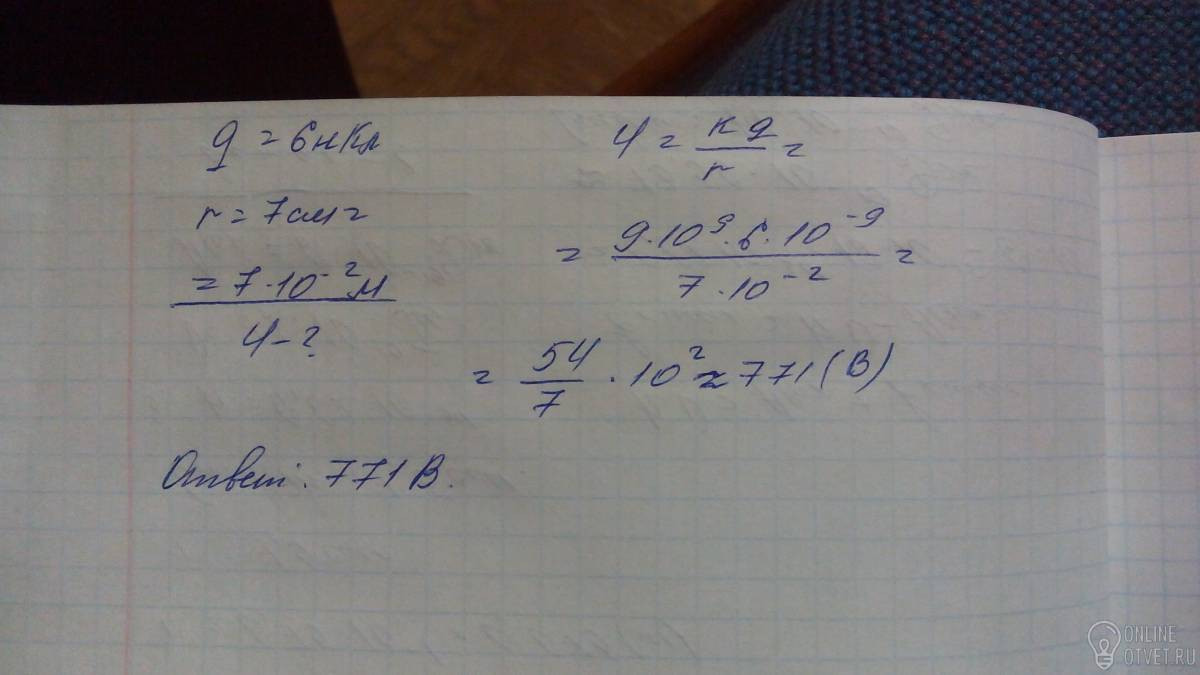 q = 6нКл
r = 7см =
= 7·10⁻²м
φ - ?
φ = kq/r =
= 9·10⁹·6·10⁻⁹ / 7·10⁻² =
= 54/7 · 10² ≈ 771 (В)
Ответ: 771 В.
ONLINE
OTVET.RU